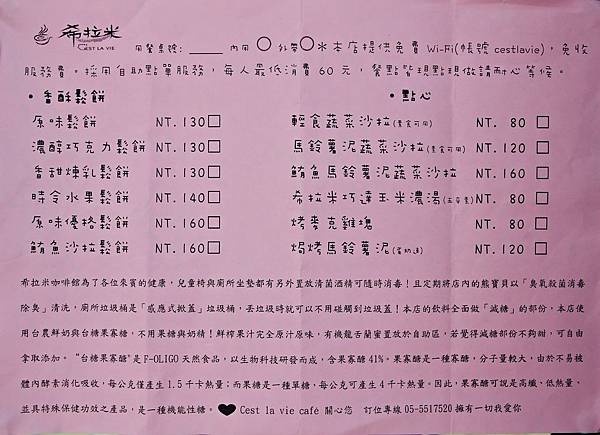 希拉米 C'EST LA VIE 用餐桌號: _____ 內用○ 外帶○ 水本店提供免費 Wi-Fi(帳號 cestlavie)，免收
服務費。採用自助點單服務，每人最低消費 60 元，餐點皆現點現做請耐心等候。
• 香酥鬆餅 • 點心
原味鬆餅 NT. 130□ 輕食蔬菜沙拉(素食可用) NT. 80 □
濃醇巧克力鬆餅 NT. 130□ 馬鈴薯泥蔬菜沙拉(素食可用) NT. 120 □
香甜煉乳鬆餅 NT. 130□ 鮪魚馬鈴薯泥蔬菜沙拉 NT. 160 □
時令水果鬆餅 NT. 140□ 希拉米巧達玉米濃湯(五辛素) NT. 80 □
原味優格鬆餅 NT. 160□ 烤麥克雞塊 NT. 80 □
鮪魚沙拉鬆餅 NT. 160□ 焗烤馬鈴薯泥(蛋奶素) NT. 120 □
希拉米咖啡館為了各位來賓的健康，兒童椅與廁所坐墊都有另外置放清菌酒精可隨時消毒！且定期將店內的熊寶貝以「臭氧殺菌消毒
除臭」清洗，廁所垃圾桶是「感應式掀蓋」垃圾桶，丟垃圾時就可以不用碰觸到垃圾蓋！本店的飲料全面做「減糖」的部份，本店使
用台農鮮奶與台糖果寡糖，不用果糖與奶精！鮮榨果汁完全原汁原味，有機龍舌蘭蜜置放於自助區，若覺得減糖部份不夠甜，可自由
拿取添加。"台糖果寡醣"是 F-OLIGO 天然食品，以生物科技研發而成，含果寡醣 41%。果寡醣是一種寡醣，分子量較大，由於不易被
體內酵素消化吸收，每公克僅產生 1.5 千卡熱量；而果糖是一種單糖，每公克可產生 4 千卡熱量。因此，果寡醣可說是高纖、低熱量、
並具特殊保健功效之產品，是一種機能性糖。♥ Cest la vie café 關心您 訂位專線 05-5517520 擁有一切我愛你